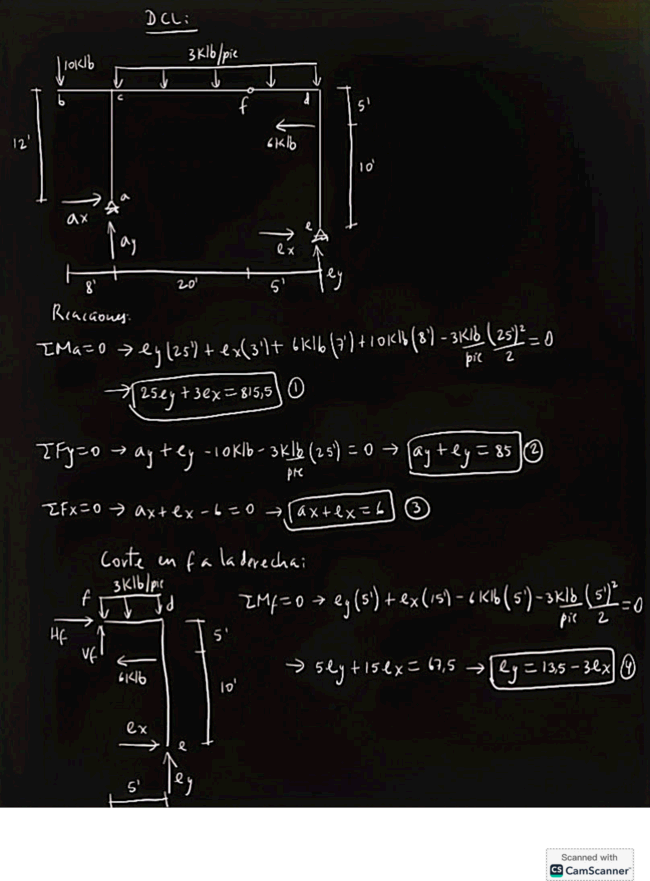 DCL:
10Klb
3Klb/pie
b c f d
5'
6Klb
12'
10'
a
ax
ay
e
ex
ey
8' 20' 5'
Reacciones:
ΣMa=0 → ey(25')+ex(3')+6Klb(7')+10Klb(8')-3Klb/pie (25')²/2=0
→ 25ey+3ex=815,5 ①
ΣFy=0 → ay+ey-10Klb-3Klb/pie(25')=0 → ay+ey=85 ②
ΣFx=0 → ax+ex-6=0 → ax+ex=6 ③
Corte en f a la derecha:
3Klb/pie
f d
Hf
Vf
5'
6Klb
10'
ex
e
ey
5'
ΣMf=0 → ey(5')+ex(15')-6Klb(5')-3Klb/pie (5')²/2=0
→ 5ey+15ex=67,5 → ey=13,5-3ex ④
Scanned with
CS CamScanner